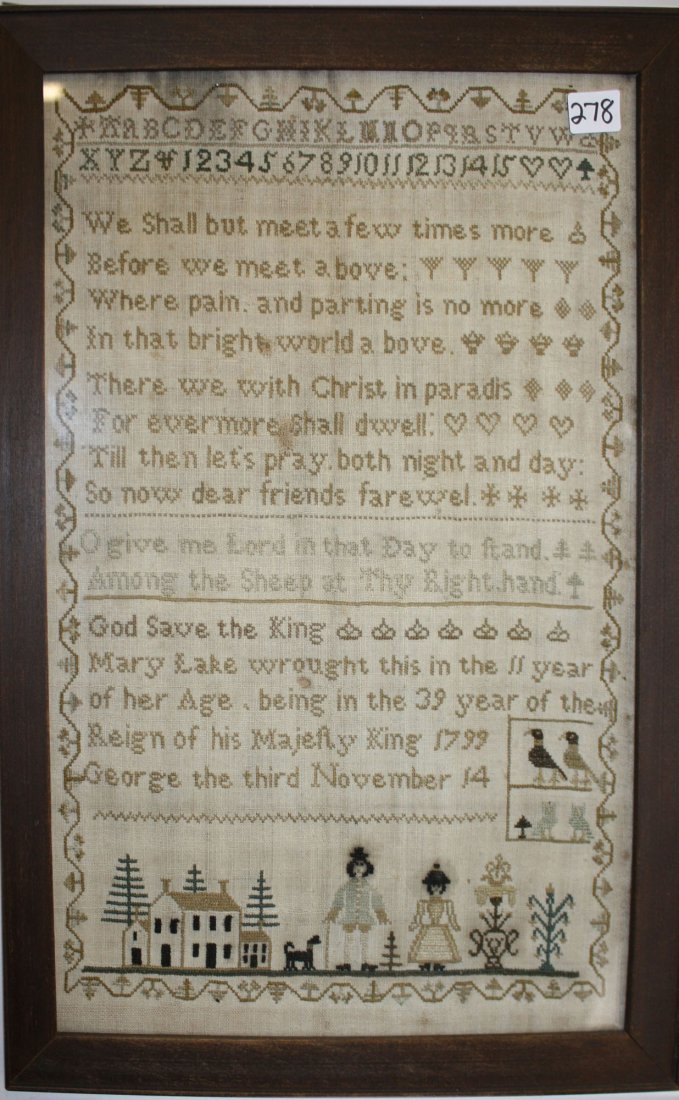 278
A B C D E F G H I K L M N O P Q R S T V W
X Y Z & 1 2 3 4 5 6 7 8 9 10 11 12 13 14 15
We Shall but meet a few times more
Before we meet above:
Where pain. and parting is no more
In that bright world a bove.
There we with Christ in paradis
For evermore shall dwell:
Till then let's pray. both night and day:
So now dear friends farewel.
O give me Lord in that Day to ſtand.
Among the Sheep at Thy Right.hand.
God Save the King
Mary Lake wrought this in the 11 year
of her Age. being in the 39 year of the
Reign of his Majeſty King 1799
George the third November 14